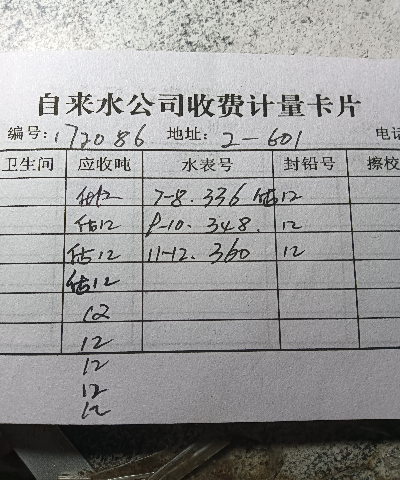 自来水公司收费计量卡片
编号:172086 地址:2-601 电话
卫生间 应收吨 水表号 封铅号 擦校
估12 7-8.336 估12
估12 8-10.348. 12
估12 11-12.360 12
估12
12
12
12
12
12